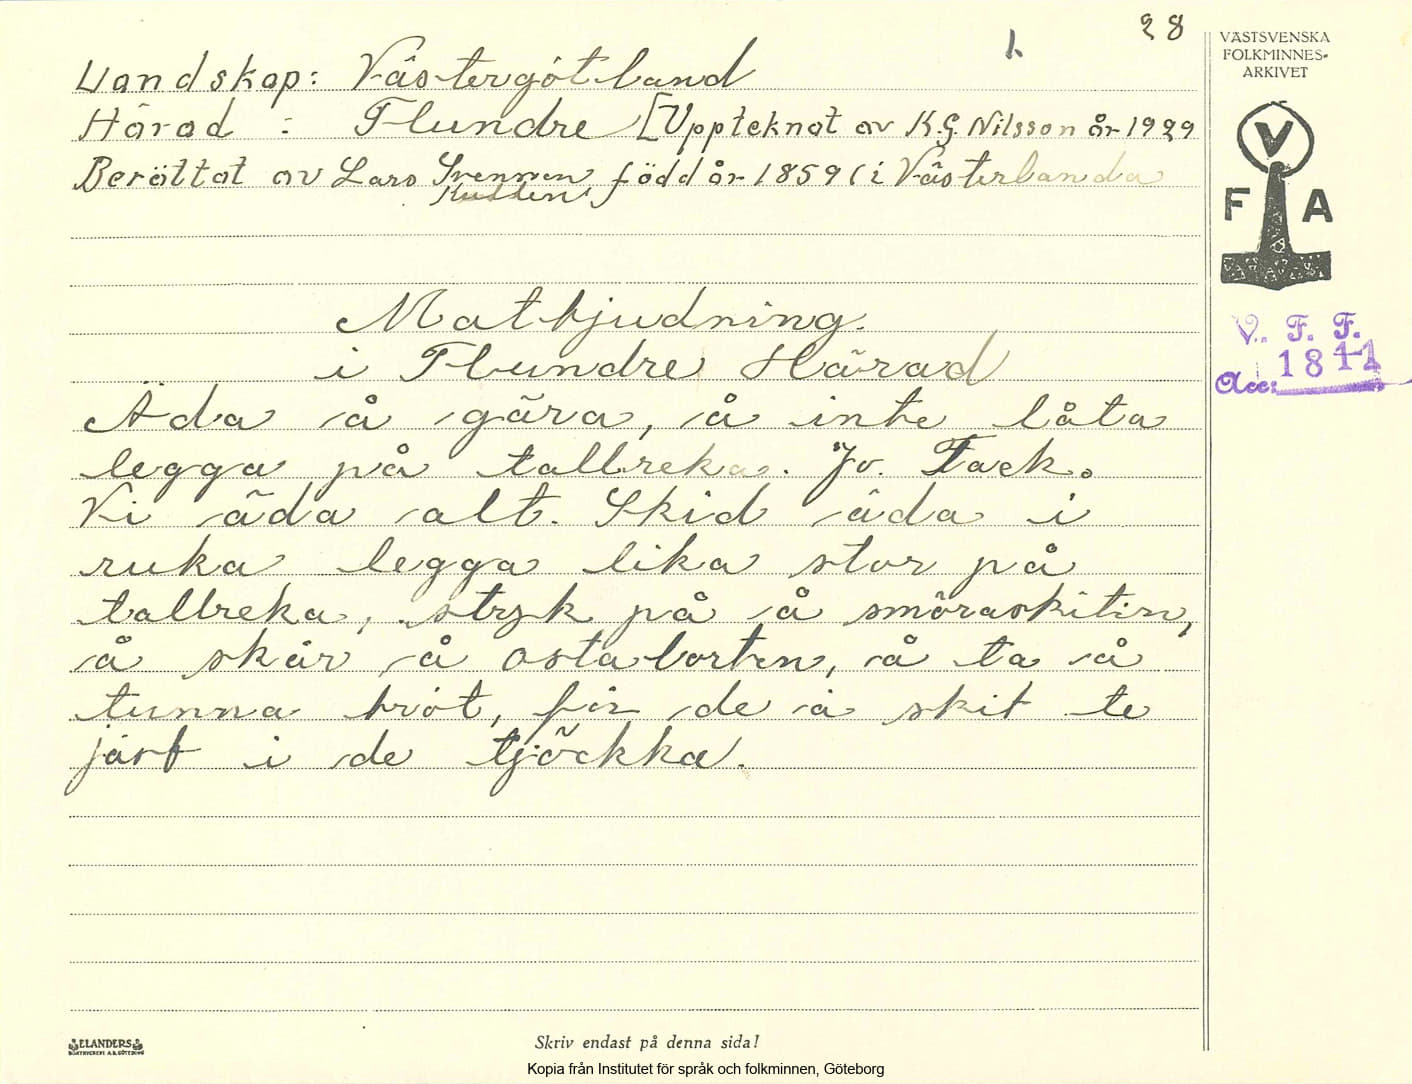 28
1.
Landskap: Västergötland
Härad : Flundre [Uppteknat av K.G. Nilsson år 1929
Berättat av Lars Svennen född år 1859 (i Västerlanda
VÄSTSVENSKA
FOLKMINNES-
ARKIVET
V
F A
V. F. F.
1811
Acc:
Matbjudning.
i Flundre Härad
Äda å gära, å inte låta
legga på tallreka. Jo. Tack.
Vi äda alt. Skid äda i
ruka legga lika stor på
tallreka, stryk på å smöraskitin,
å skär å ostaborten, å ta å
tunna bröt, för de ä skit te
järf i de tjöckka.
ELANDERS
BOKTRYCKERI A.B. GÖTEBORG
Skriv endast på denna sida!
Kopia från Institutet för språk och folkminnen, Göteborg